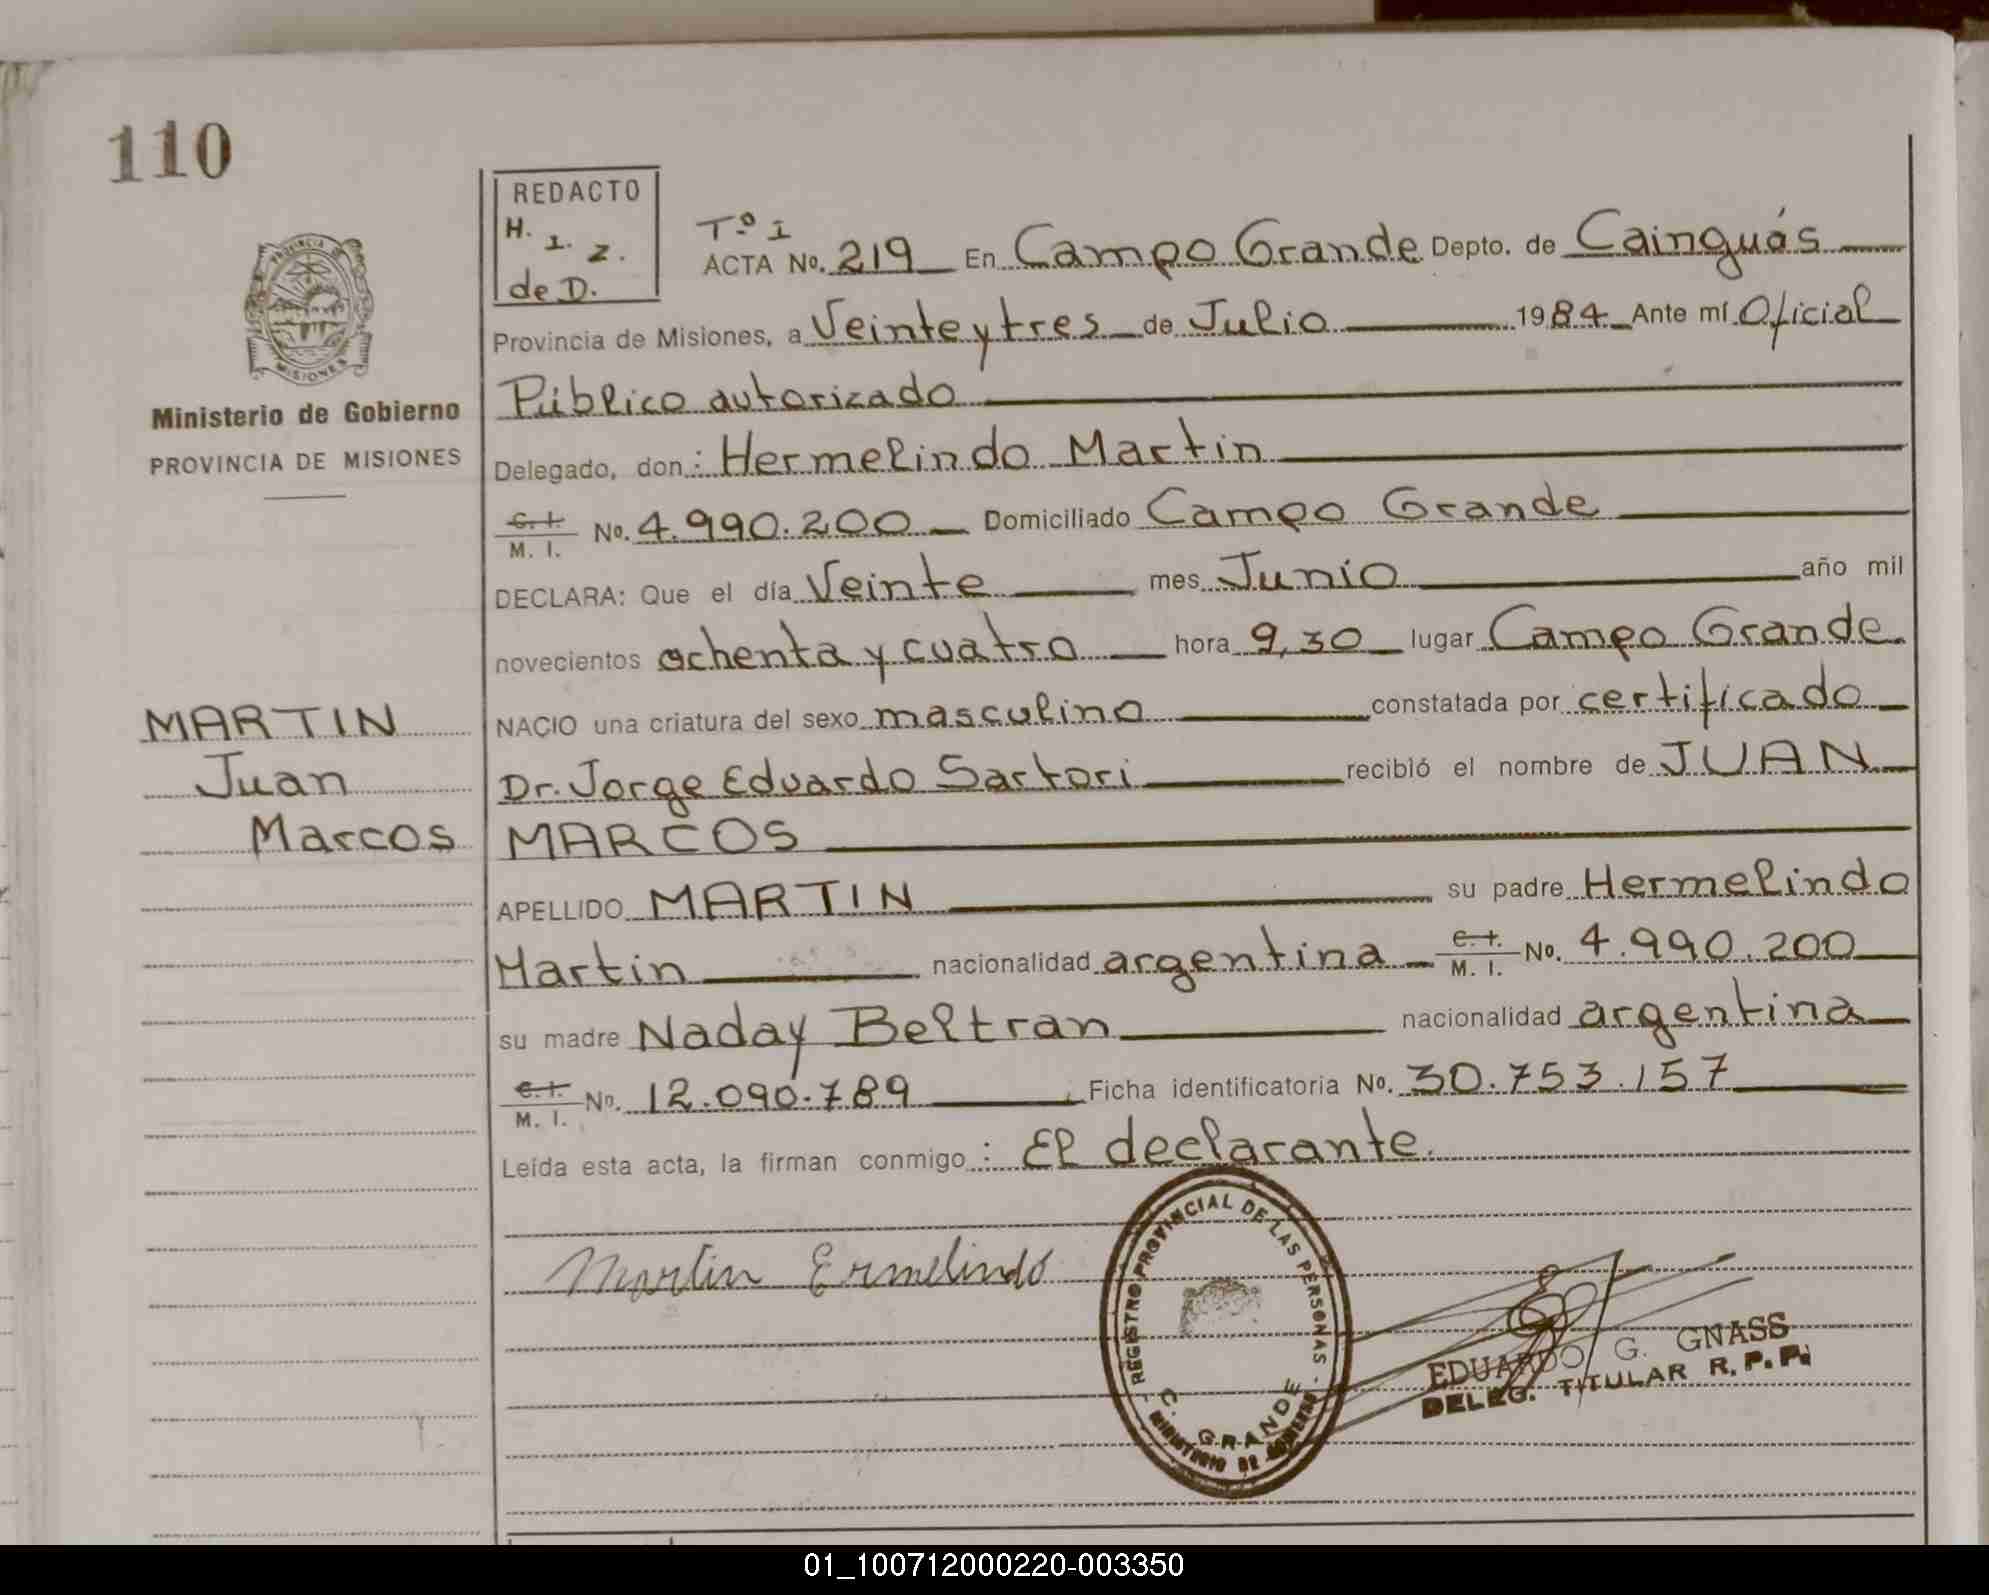 110
PROVINCIA DE
MISIONES
Ministerio de Gobierno
PROVINCIA DE MISIONES
MARTIN
Juan
Marcos
REDACTO
H. I. Z.
de D.
Tº I
ACTA No. 219 En Campo Grande Depto. de Cainguás
Provincia de Misiones, a Veinte y tres de Julio 1984 Ante mí Oficial
Público autorizado
Delegado, don: Hermelindo Martin
C. I. / M. I. No. 4.990.200 Domiciliado Campo Grande
DECLARA: Que el día Veinte mes Junio año mil
novecientos ochenta y cuatro hora 9,30 lugar Campo Grande
NACIO una criatura del sexo masculino constatada por certificado
Dr. Jorge Eduardo Sartori recibió el nombre de JUAN
MARCOS
APELLIDO MARTIN su padre Hermelindo
Martin nacionalidad argentina C. I. / M. I. No. 4.990.200
su madre Naday Beltran nacionalidad argentina
C. I. / M. I. No. 12.090.789 Ficha identificatoria No. 30.753.157
Leída esta acta, la firman conmigo: El declarante.
Martin Ermelindo
REGISTRO PROVINCIAL DE LAS PERSONAS
C. GRANDE
MINISTERIO DE GOBIERNO
EDUARDO G. GNASS
DELEG. TITULAR R. P. P.
01_100712000220-003350